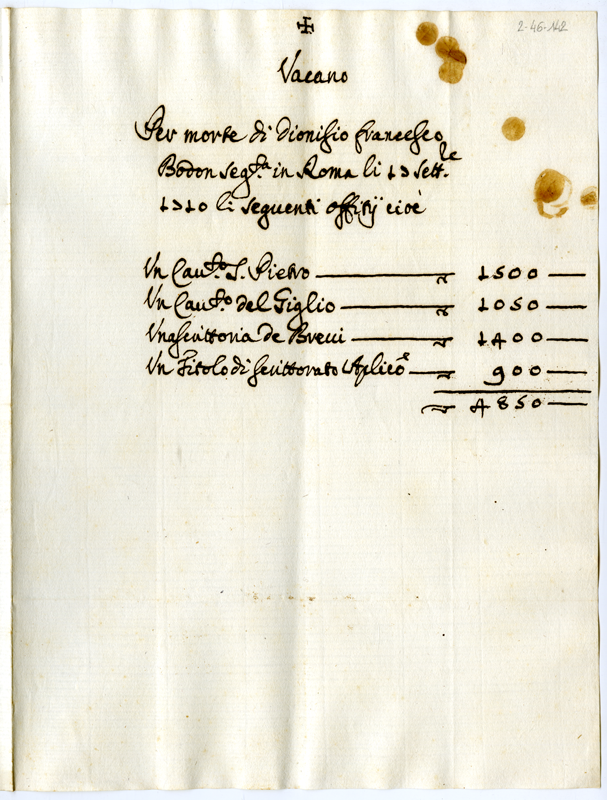 2-46-142
✠
Vacano
Per morte di Dionisio Francesco
Bodon seg.ta in Roma li 13 Sett.re
1710 li seguenti offitij cioè
Un Cau.to S. Pietro — 1500 —
Un Cau.to del Giglio — 1050 —
Una scrittoria de Breui — 1400 —
Un Titolo di scrittorato Aplico — 900 —
4850 —